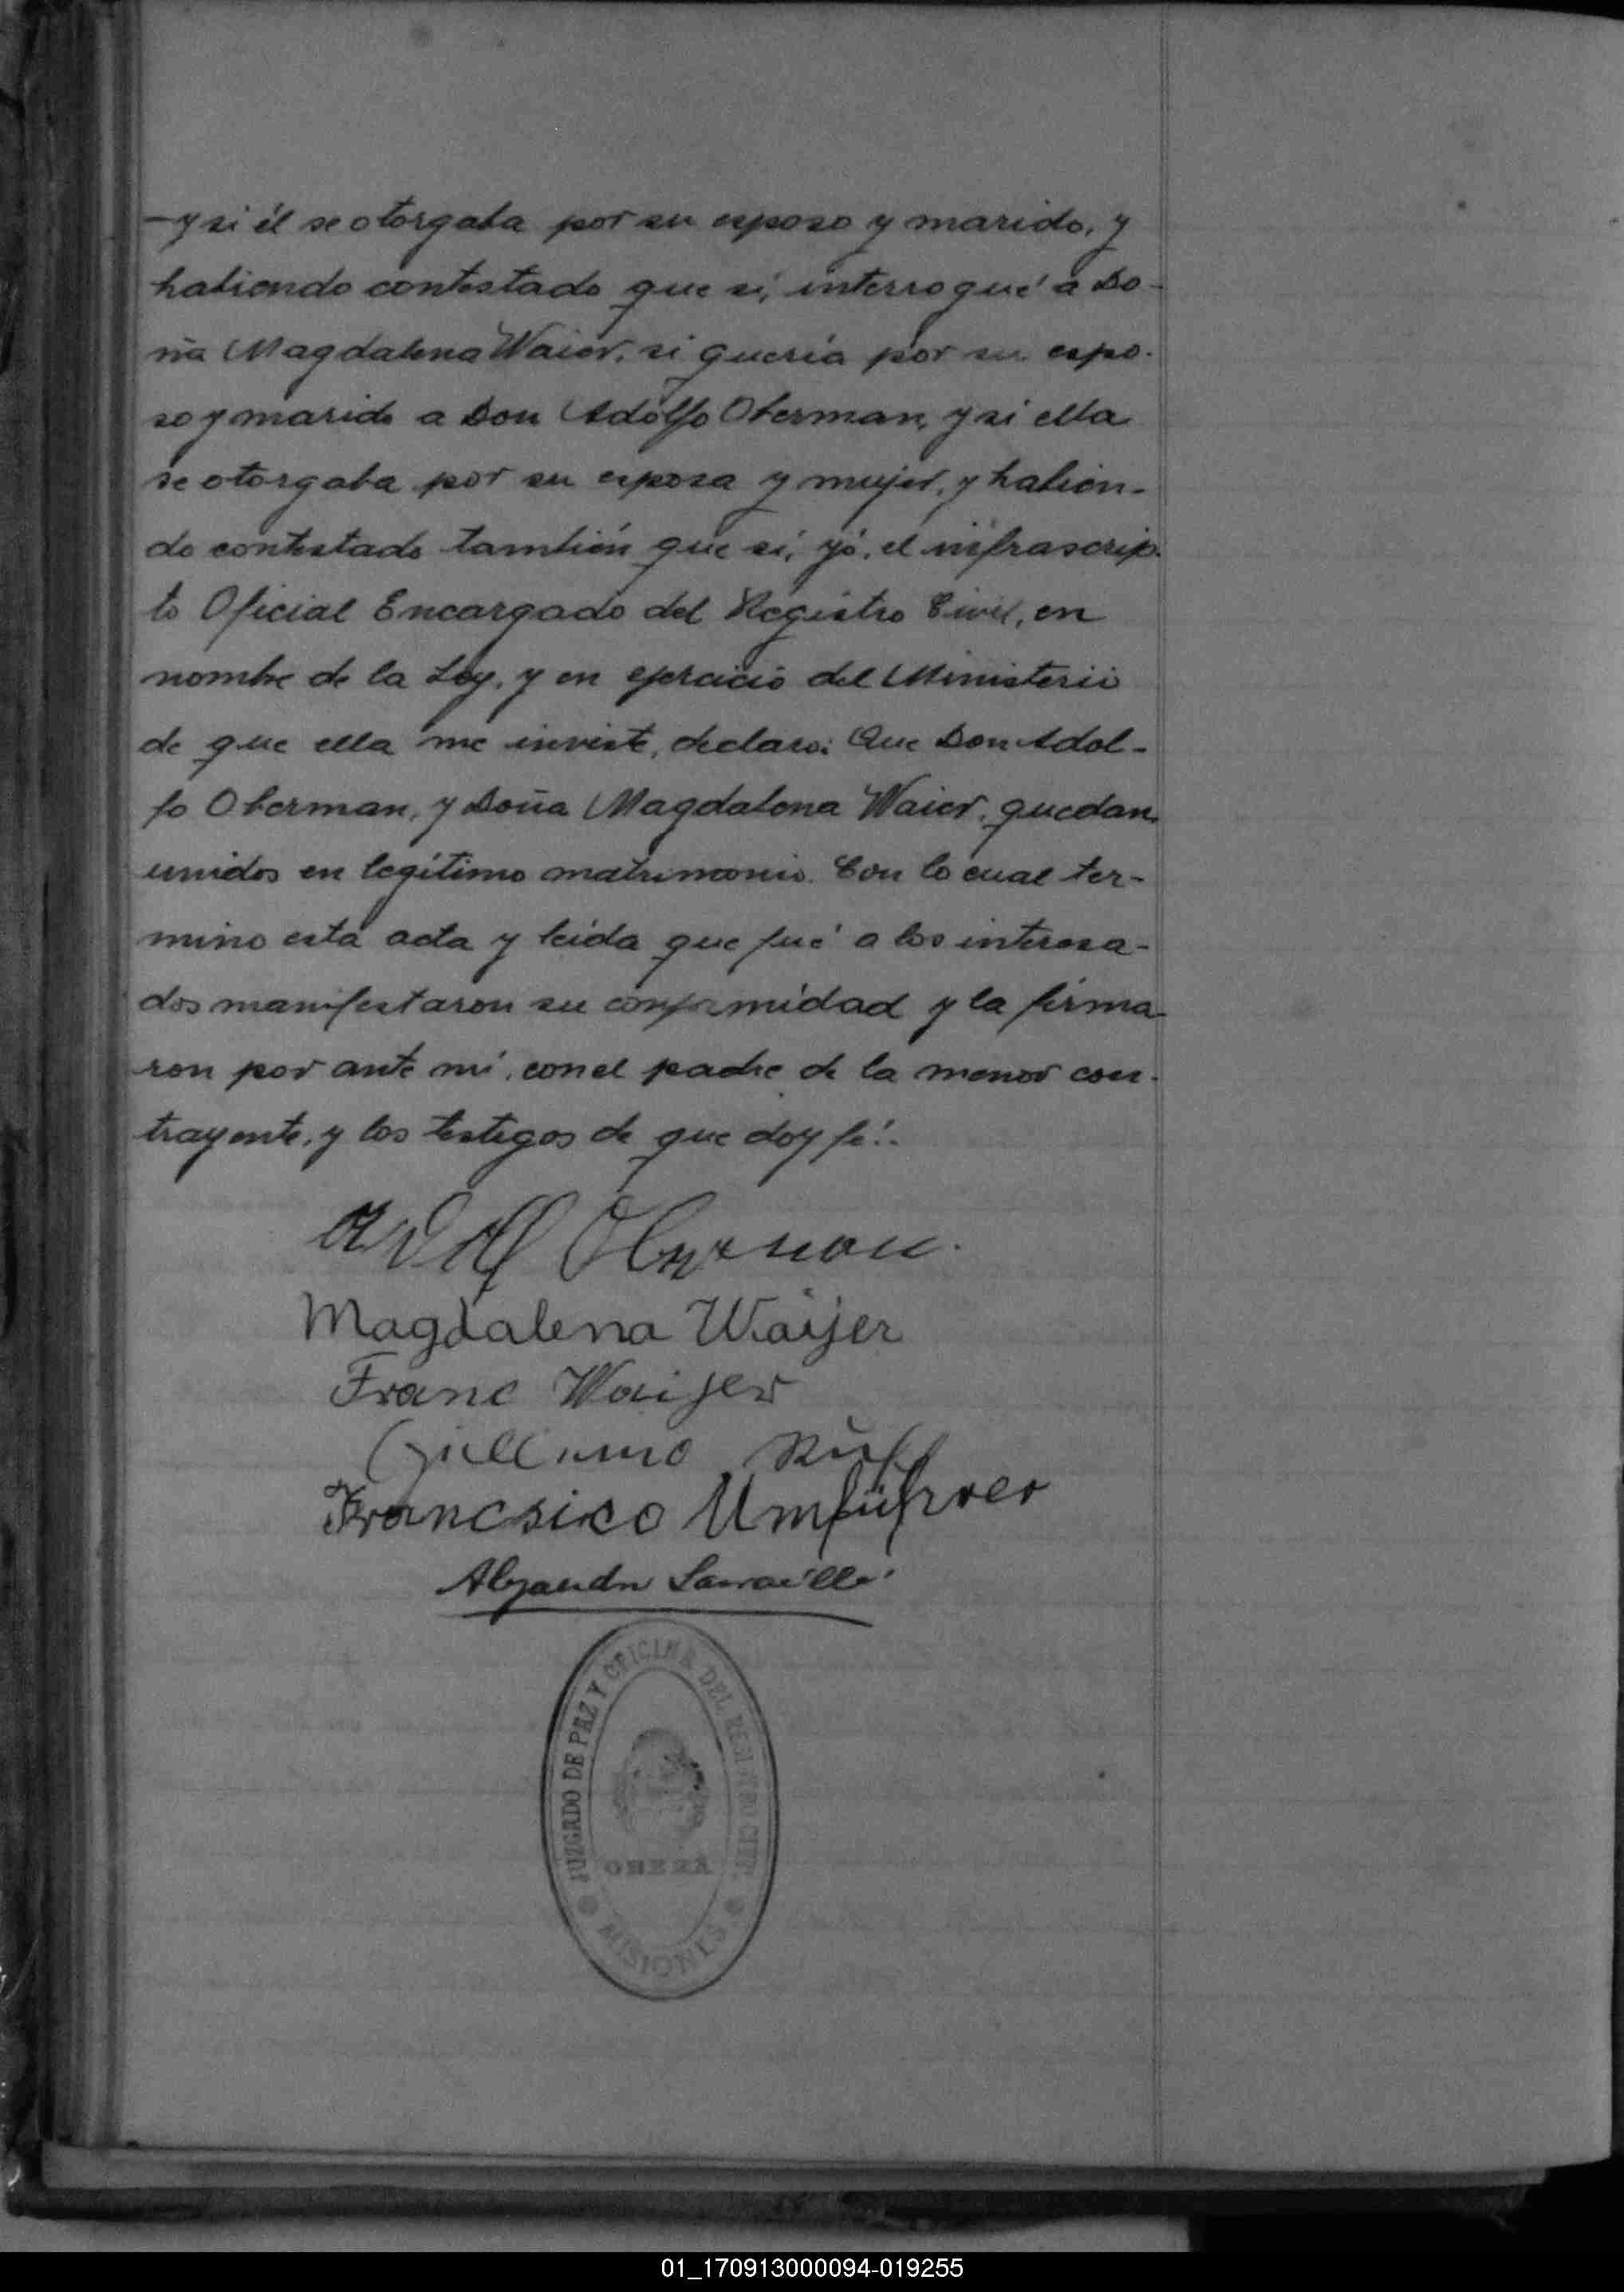 —y si él se otorgaba por su esposo y marido, y
habiendo contestado que sí, interrogué a Do-
ña Magdalena Waier, si quería por su espo-
so y marido a Don Adolfo Oberman, y si ella
se otorgaba por su esposa y mujer, y habien-
do contestado también que sí, yó, el infrascrip-
to Oficial Encargado del Registro Civil, en
nombre de la Ley, y en ejercicio del Ministerio
de que ella me inviste, declaro: Que Don Adol-
fo Oberman, y Doña Magdalena Waier, quedan
unidos en legítimo matrimonio. Con lo cual ter-
mino esta acta y leída que fué a los interesa-
dos manifestaron su conformidad y la firma-
ron por ante mí, con el padre de la menor con-
trayente, y los testigos de que doy fé.-
Adolf Oberman.
Magdalena Waijer
Franc Waijer
Guillermo Ruff
Francsisco Umführer
Alejandro
JUZGADO DE PAZ Y OFICINA DEL REGISTRO CIVIL
OBERÁ
MISIONES
01_170913000094-019255